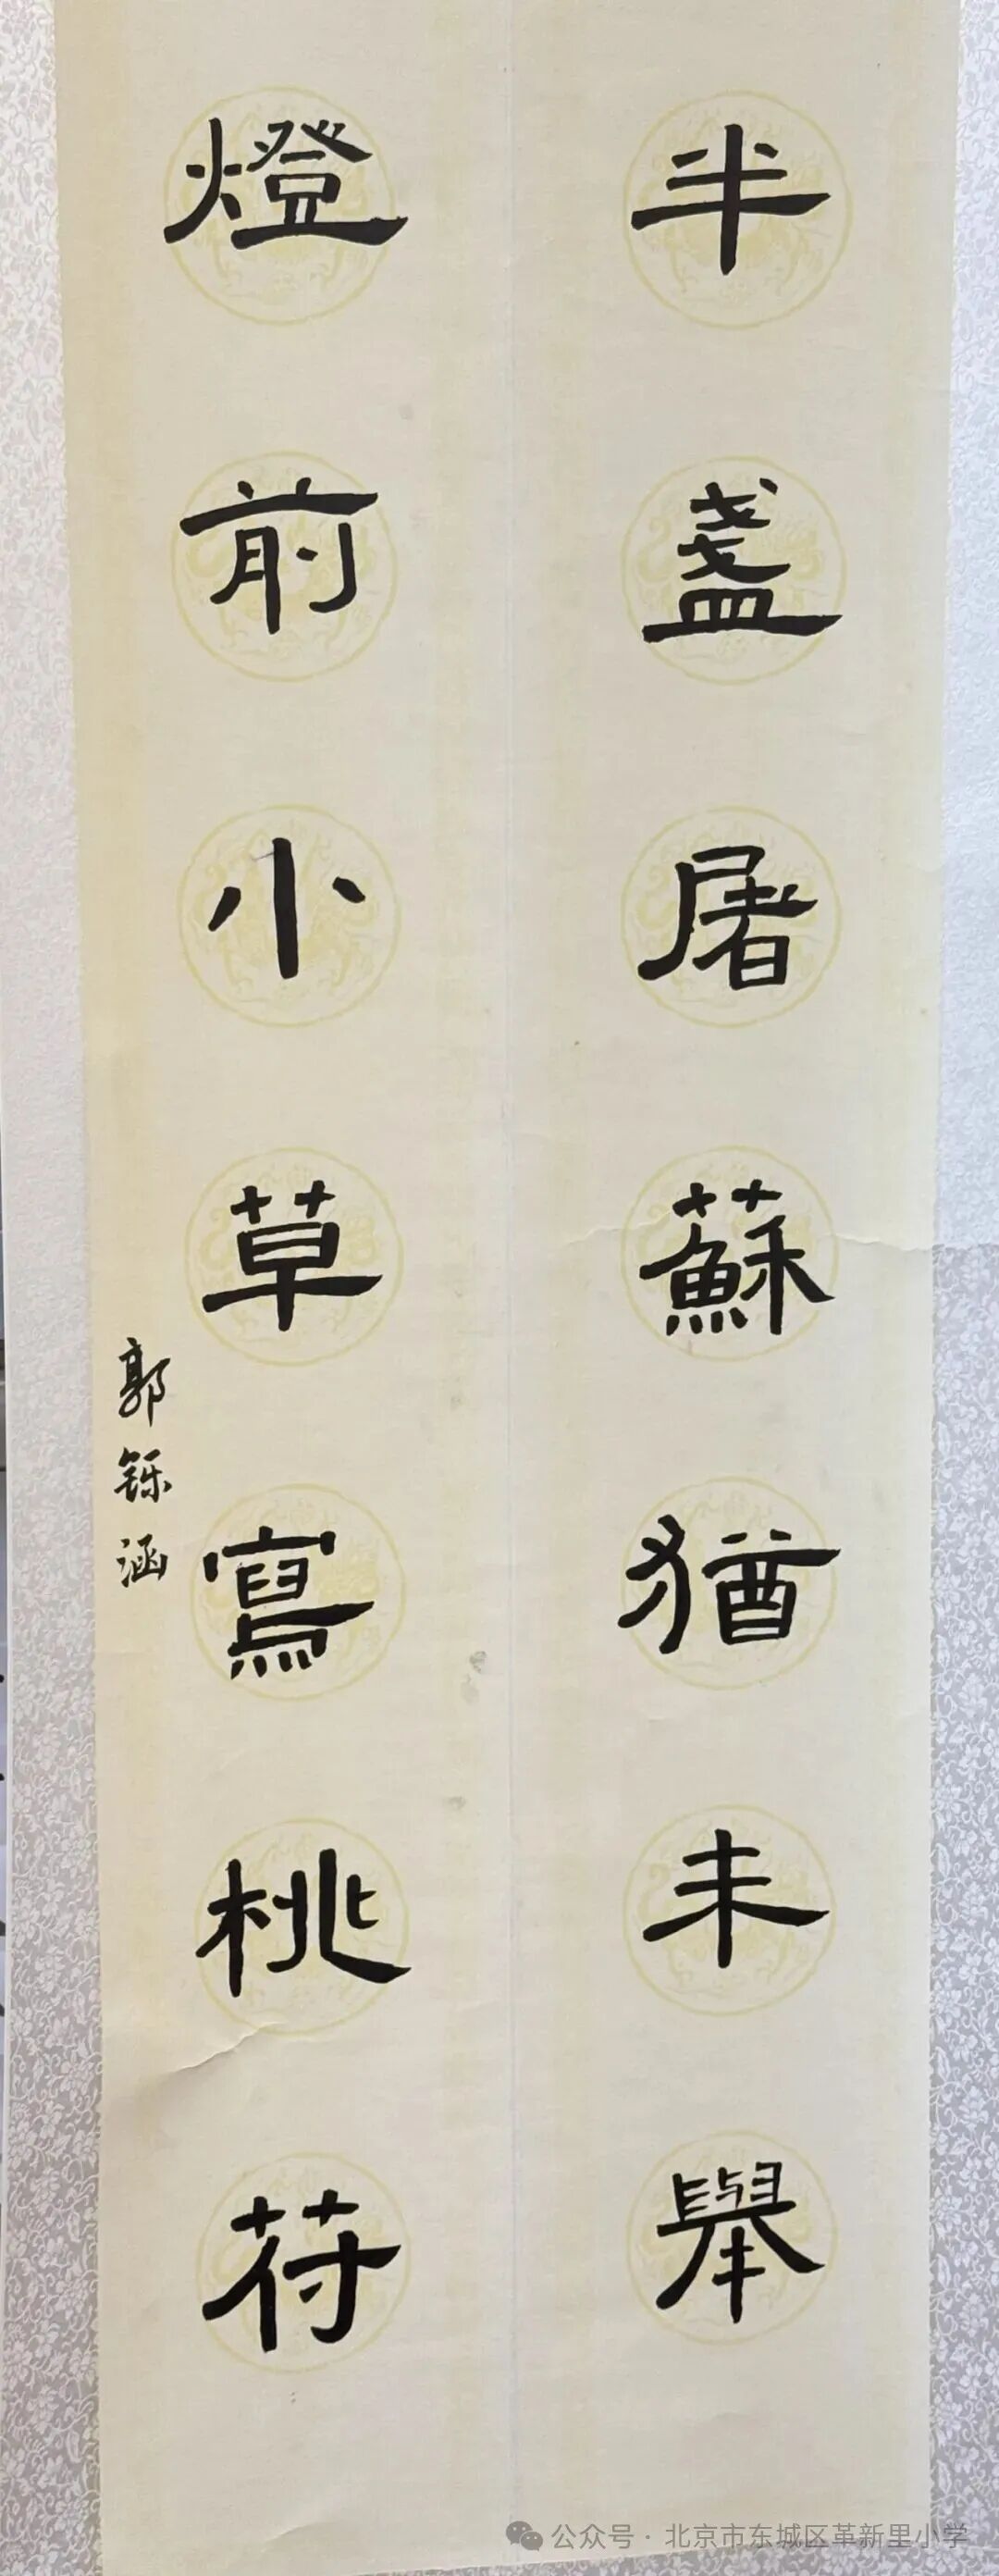 半盞屠蘇猶未舉
燈前小草寫桃符
郭铄涵
公众号 · 北京市东城区革新里小学